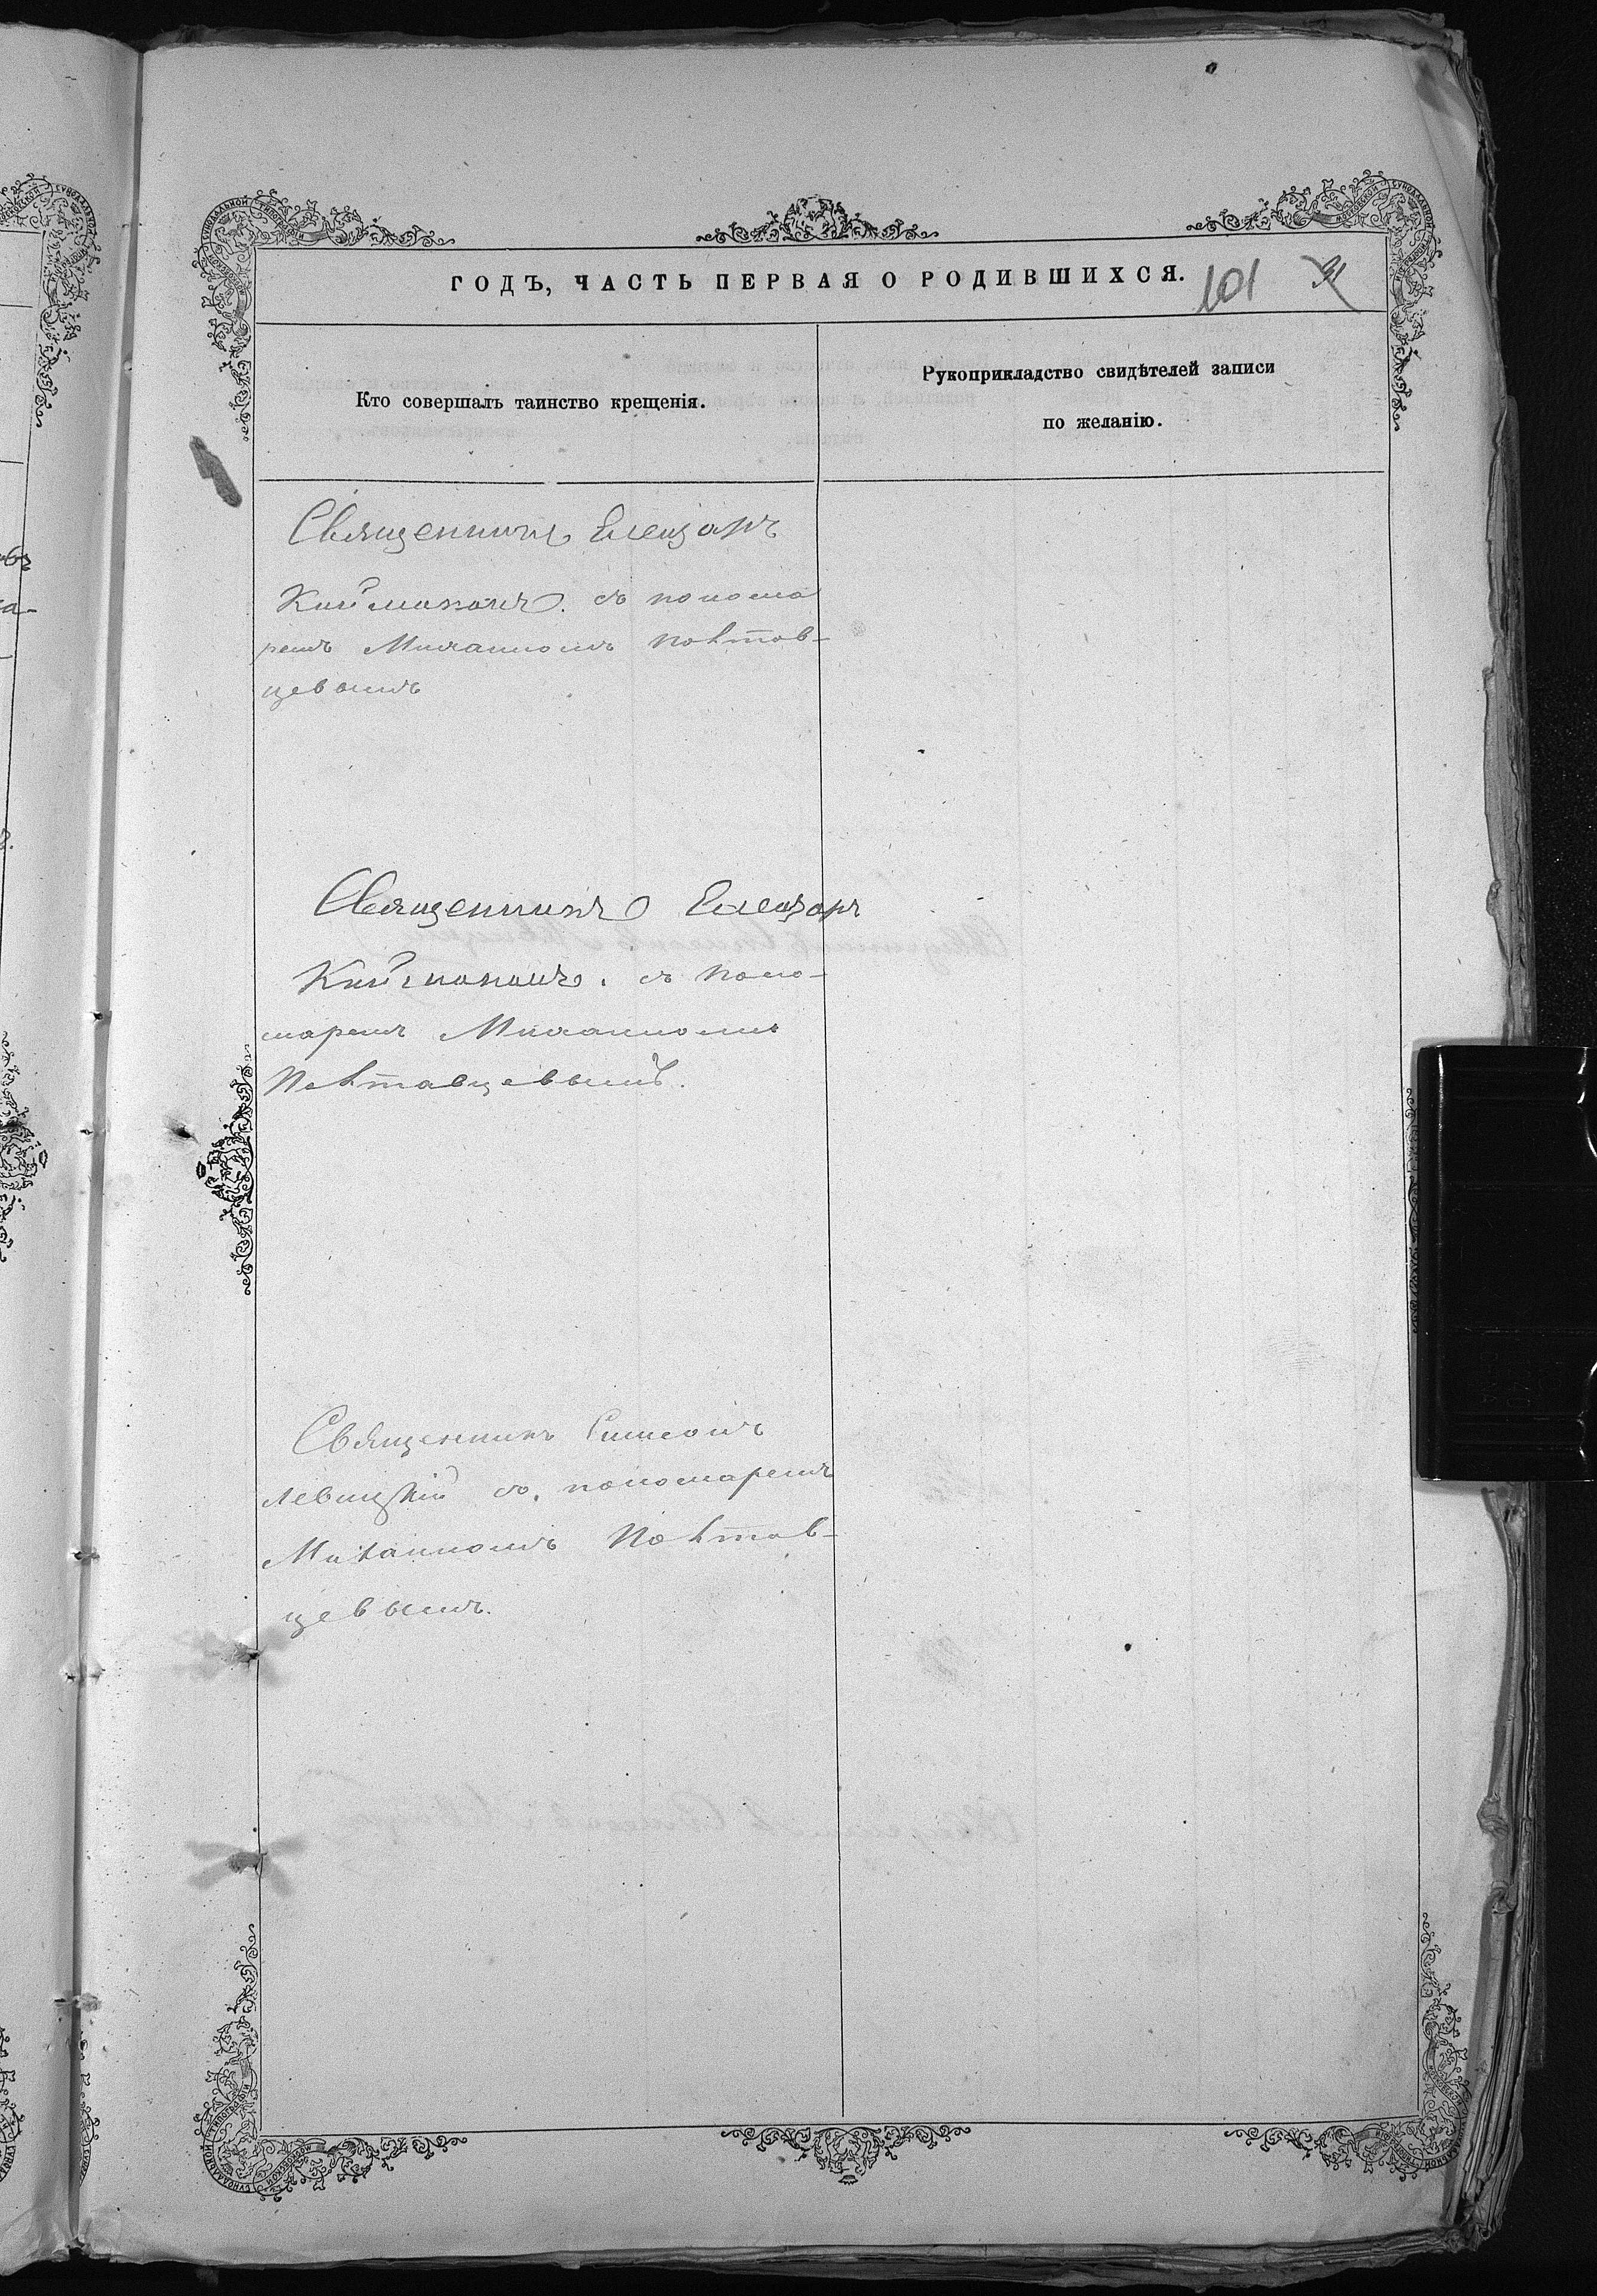 ГОДЪ, ЧАСТЬ ПЕРВАЯ О РОДИВШИХСЯ.
101
Кто совершалъ таинство крещенія.
Рукоприкладство свидѣтелей записи
по желанію.
Священникъ Елеазаръ
съ понома
ремъ Михаиломъ Полтав-
цевымъ
Священникъ Елеазаръ
съ поно-
маремъ Михаиломъ
Полтавцевымъ.
Священникъ Симеонъ
Левицкій съ пономаремъ
Михаиломъ Полтав-
цевымъ.